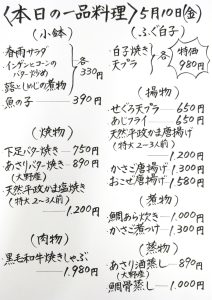 〈本日の一品料理〉5月10日(金)
(小鉢)
・春雨サラダ
・インゲンとコーンの
バター炒め
・蕗としめじの煮物
各330円
・魚の子 390円
(焼物)
・下足バター焼 750円
・あさりバター焼 890円
(大野産)
・天然平政かま塩焼き
(特大2〜3人前)
1.200円
(肉物)
・黒毛和牛焼きしゃぶ
1.980円
(ふぐ白子)
・白子焼き
・天プラ
各
特価
980円
(揚物)
・せぐろ天プラ 650円
・あじフライ 650円
・天然平政かま唐揚げ
(特大2〜3人前)
1.200円
・かさご唐揚げ 1.300円
・おこぜ唐揚げ 1.580円
(煮物)
・鯛あら炊き 1.000円
・かさご煮つけ 1.300円
(蒸物)
・あさり酒蒸し 890円
(大野産)
・鯛骨蒸し 1.000円